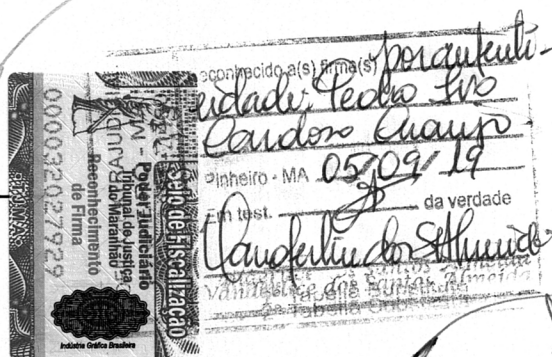 econhecido a(s) firma(s) por autenti-
cidade: Pedro Ivo
Cardoso Araujo.
Pinheiro - MA 05/09/19
Em test. da verdade
dos Santos Almeida
Tabeliã Substituta
Selo de Fiscalização
Poder Judiciário
Tribunal de Justiça
do Maranhão
Reconhecimento
de Firma
000032027929
Indústria Gráfica Brasileira